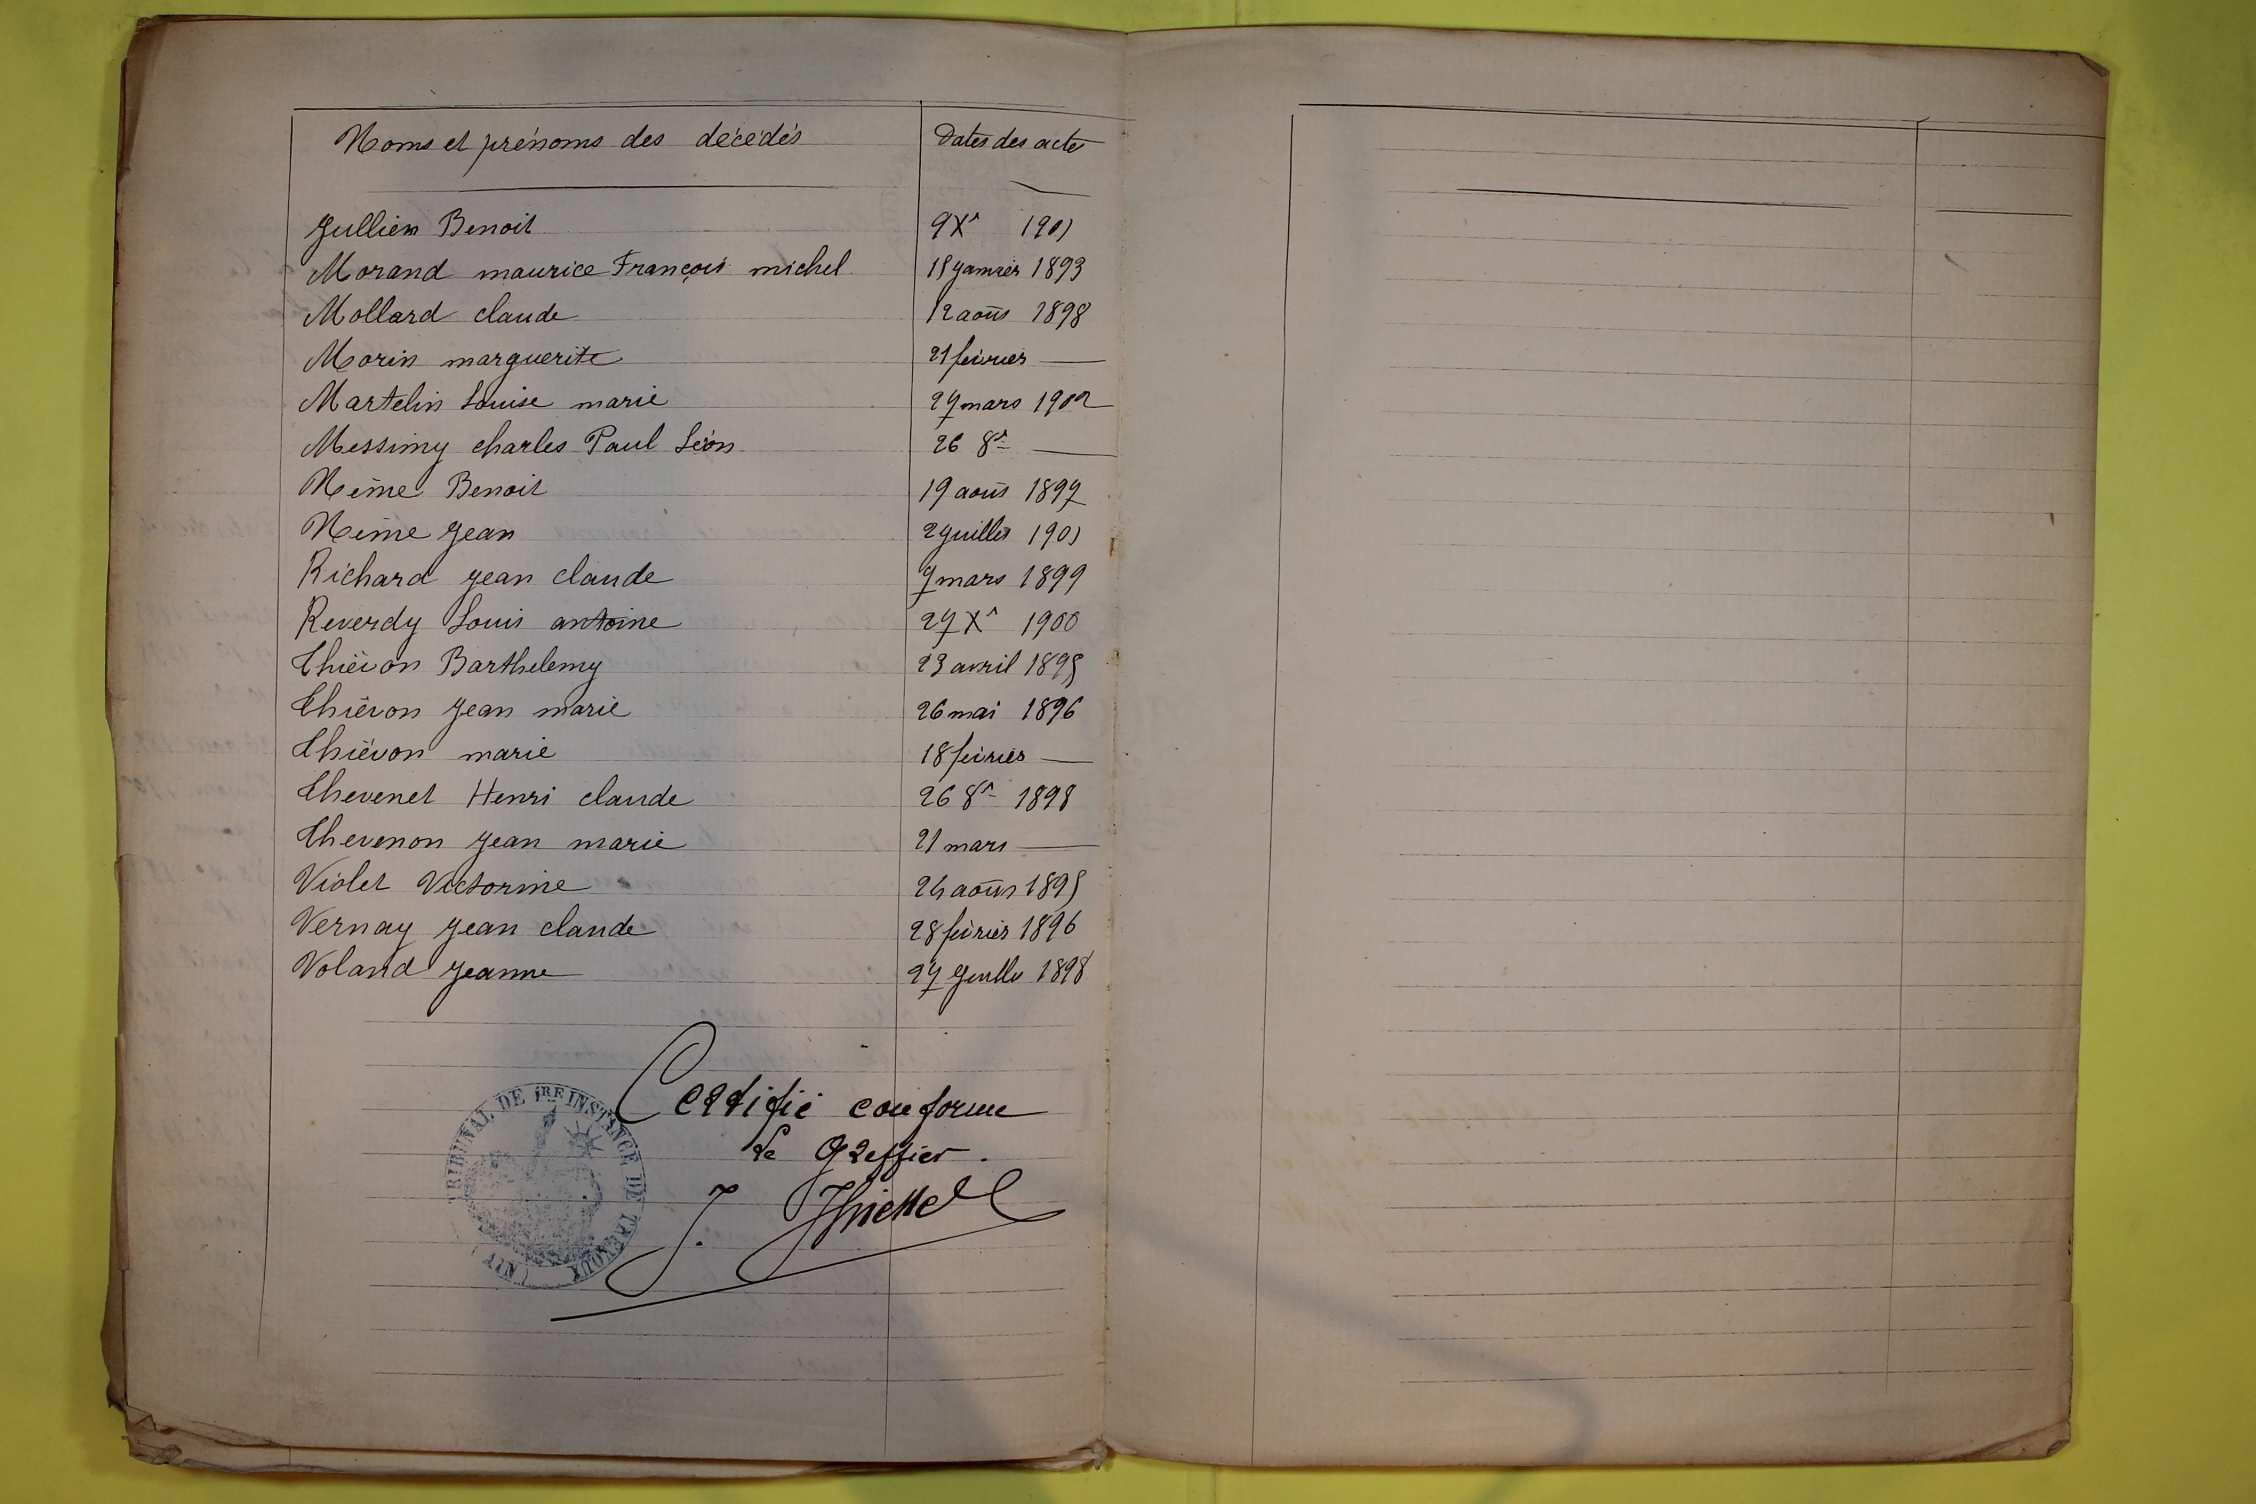 Noms et prénoms des décédés Dates des actes
Jullien Benoit 9 Xr 1901
Morand maurice François michel janvier 1893
Mollard claude 12 août 1898
Morin marguerite 21 février —
Martelin Louise marie 27 mars 1902
Messimy charles Paul Léon 26 8r —
Même Benoit 19 août 1897
Même Jean 2 juillet 1901
Richard Jean claude 7 mars 1899
Reverdy Louis antoine 27 Xr 1900
Thiévon Barthelemy 23 avril 1895
Thiévon Jean marie 26 mai 1896
Thiévon marie 18 février —
Thevenet Henri claude 26 8r 1898
Thevenon Jean marie 21 mars —
Violet Victorine 24 août 1895
Vernay Jean claude 28 février 1896
Voland Jeanne 27 Juillet 1898
Certifié conforme
Le Greffier.
J.
TRIBUNAL DE 1RE INSTANCE DE TREVOUX (AIN)